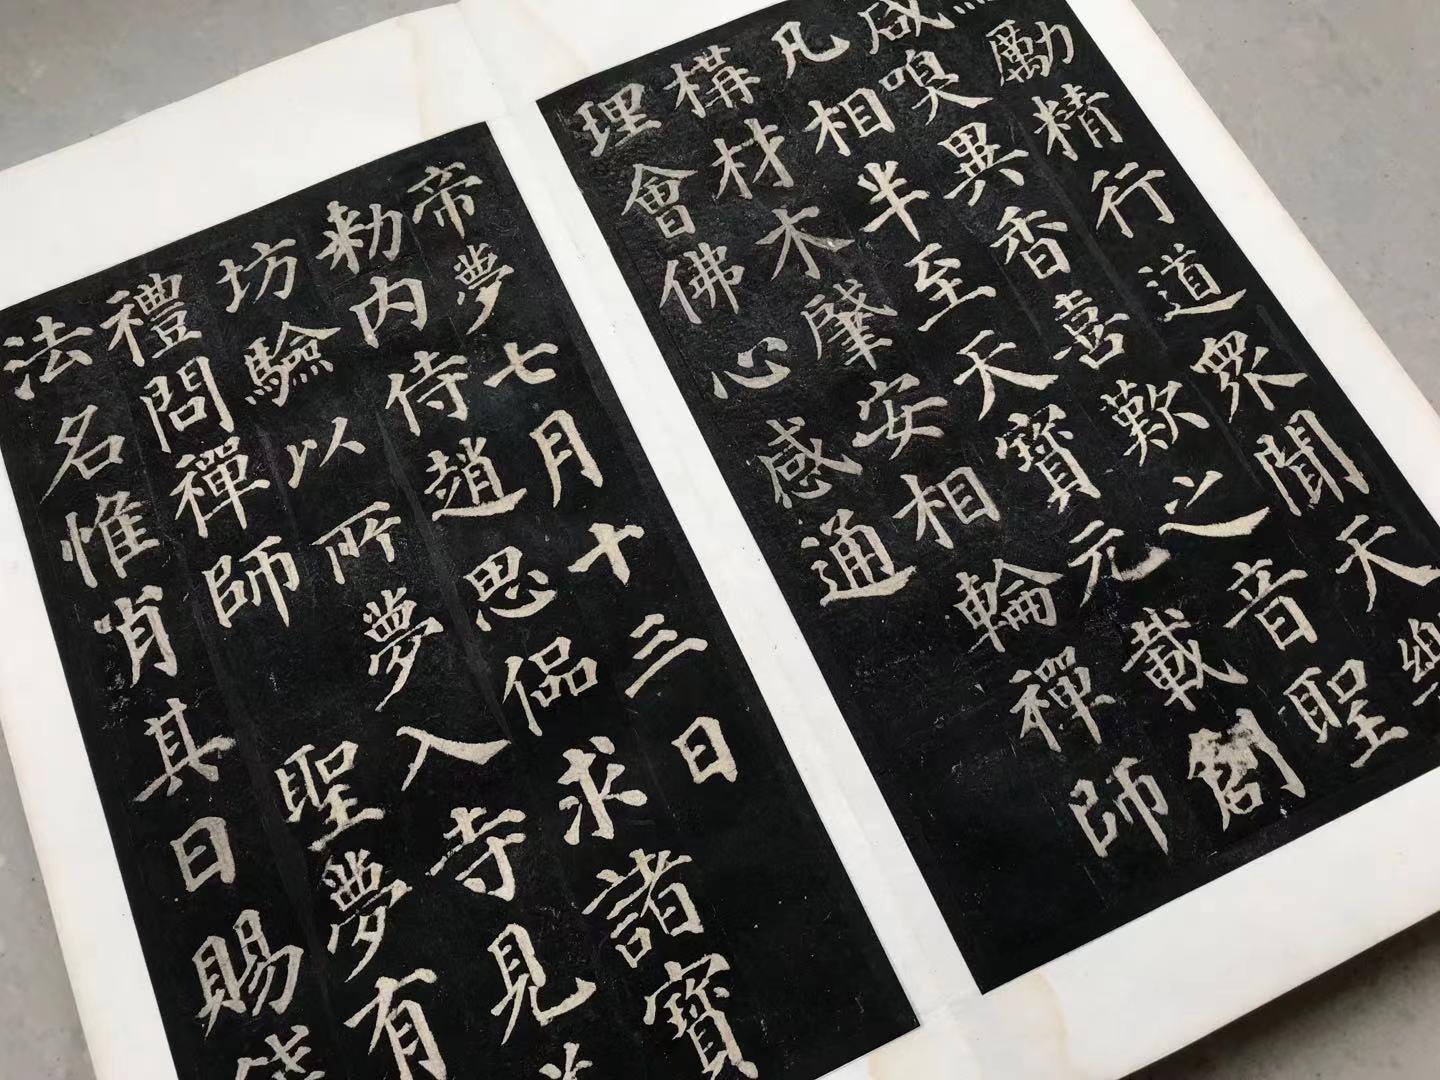 勵精行道衆聞天樂
咸嗅異香喜歎之音聖
凡相半至天寶元載創
構材木肇安相輪禪師
理會佛心感通
帝夢七月十三日
勑內侍趙思偘求諸寶
坊驗以所夢入寺見
禮問禪師 聖夢有
法名惟肖其日賜錢